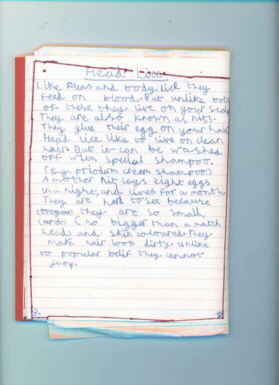 Head Lice
Like Fleas and body lice they
feed on blood. But unlike both
of these they live on your
They are also known as nits.
They glue their egg on your hair
Head lice like to live on clean
hair. But it can be washed
off with special shampoo.
(E.g. shampoo)
A mother Nit lays eight eggs
in a night, and lives for a month.
They are hard to see because
they are so small
(no bigger than a match
head) and skin coloured. They
make hair look dirty. Unlike
to popular belif They cannot
jump.